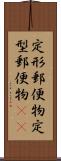 定形郵便物定
型郵便物